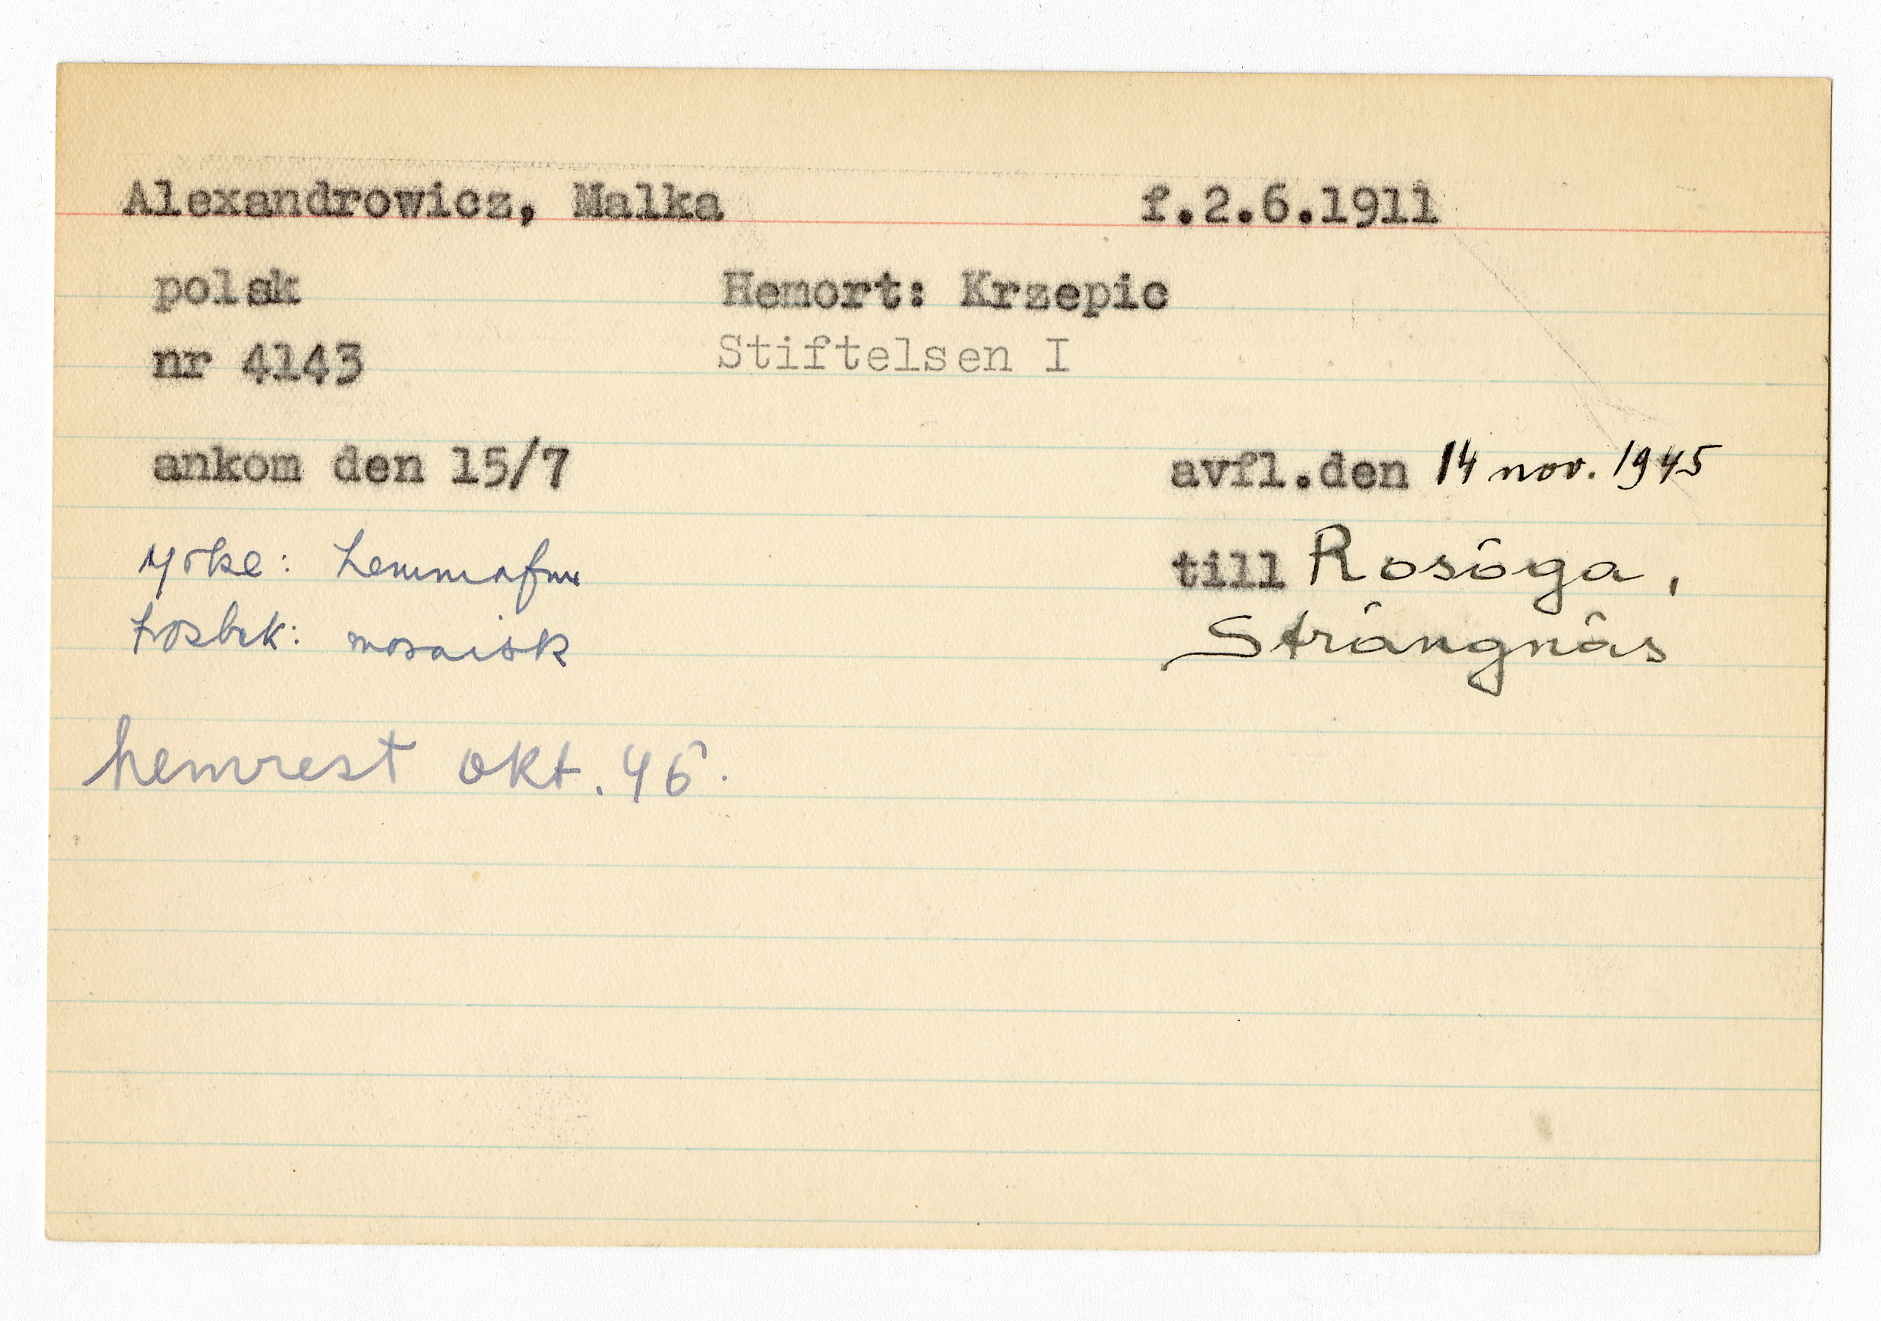 Alexandrowicz, Malka f.2.6.1911
polsk Hemort: Krzepic
nr 4143 Stiftelsen I
ankom den 15/7 avfl.den 14 nov. 1945
yrke: hemmafru till Rosöga,
trosbek: mosaisk Strängnäs
hemrest okt. 46.